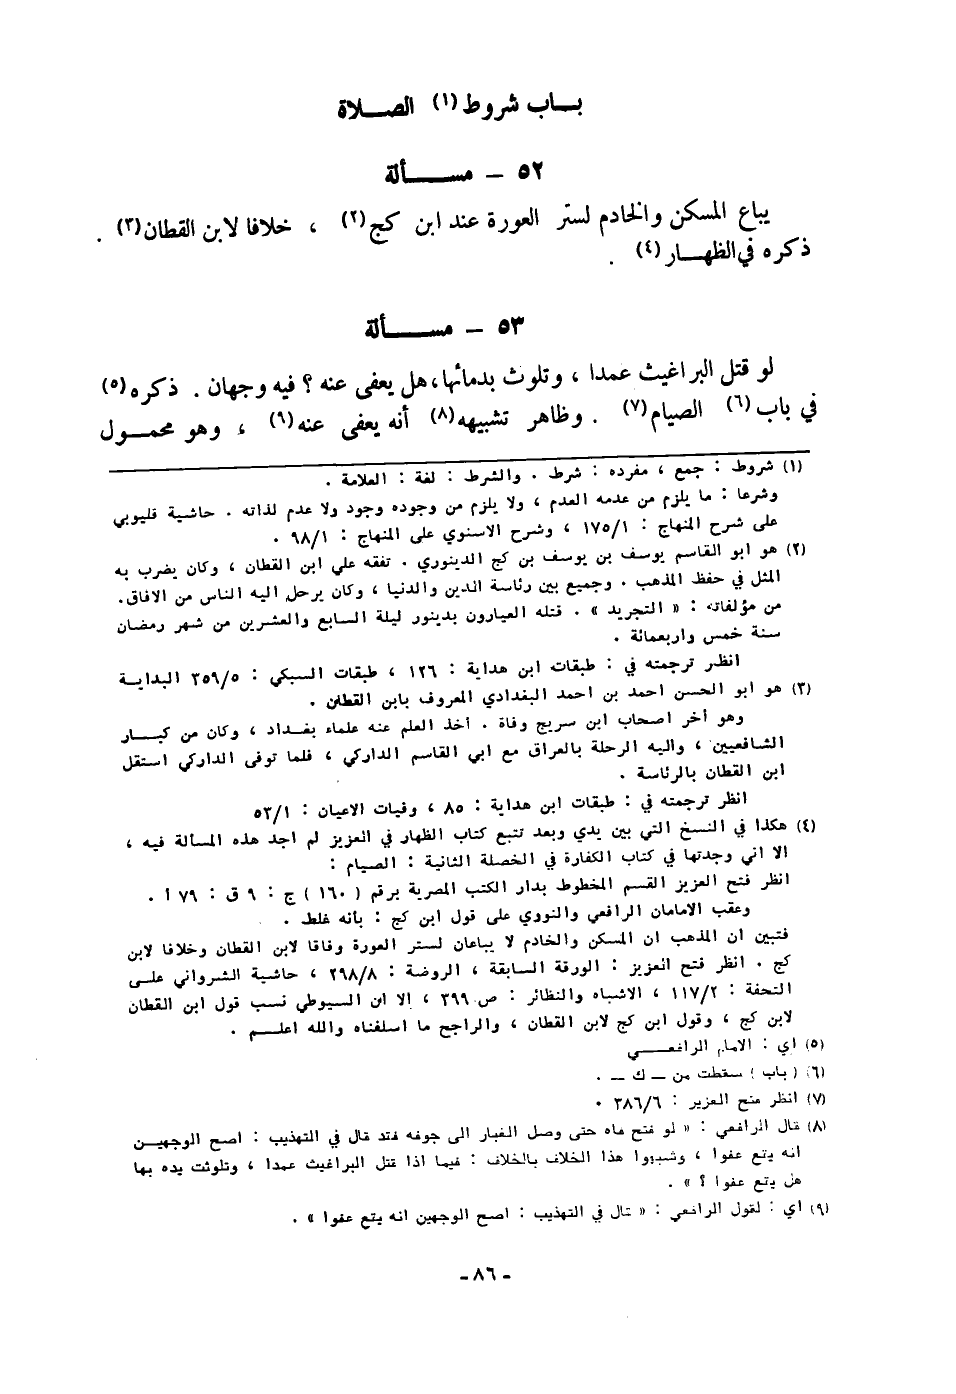 بـاب شروط (١) الصـلاة
٥٢ – مسـألة
يباع المسكن والخادم لستر العورة عند ابن كج (٢) ، خلافا لابن القطان (٣) .
ذكره في الظهـار (٤) .
٥٣ – مسـألة
لو قتل البراغيث عمدا ، وتلوث بدمائها، هل يعفى عنه ؟ فيه وجهان . ذكره (٥)
في باب (٦) الصيام (٧) . وظاهر تشبيهه (٨) أنه يعفى عنه (٩) ، وهو محمـول
(١) شروط : جمع ، مفرده : شرط . والشرط : لغة : العلامة .
وشرعا : ما يلزم من عدمه العدم ، ولا يلزم من وجوده وجود ولا عدم لذاته . حاشية قليوبي
على شرح المنهاج : ١/١٧٥ ، وشرح الاسنوي على المنهاج : ١/٩٨ .
(٢) هو ابو القاسم يوسف بن يوسف بن كج الدينوري . تفقه علي ابن القطان ، وكان يضرب به
المثل في حفظ المذهب . وجميع بين رئاسة الدين والدنيا ، وكان يرحل اليه الناس من الافاق.
من مؤلفاته : « التجريد » . قتله العيارون بدينور ليلة السابع والعشرين من شهر رمضان
سنة خمس واربعمائة .
انظر ترجمته في : طبقات ابن هداية : ١٢٦ ، طبقات السبكي : ٥/٣٥٩ البدايـة
(٣) هو ابو الحسن احمد بن احمد البغدادي المعروف بابن القطان .
وهو أخر اصحاب ابن سريج وفاة . أخذ العلم عنه علماء بغـداد ، وكان من كبـار
الشافعيين ، واليه الرحلة بالعراق مع ابي القاسم الداركي ، فلما توفى الداركي استقل
ابن القطان بالرئاسة .
انظر ترجمته في : طبقات ابن هداية : ٨٥ ، وفيات الاعيان : ١/٥٣
(٤) هكذا في النسخ التي بين يدي وبعد تتبع كتاب الظهار في العزيز لم اجد هذه المسألة فيه ،
الا اني وجدتها في كتاب الكفارة في الخصلة الثانية : الصيام :
انظر فتح العزيز القسم المخطوط بدار الكتب المصرية برقم ( ١٦٠ ) ج : ٩ ق : ٧٩ أ .
وعقب الامامان الرافعي والنووي على قول ابن كج : بأنه غلط .
فتبين ان المذهب ان المسكن والخادم لا يباعان لستر العورة وفاقا لابن القطان وخلافا لابن
كج . انظر فتح العزيز : الورقة السابقة ، الروضة : ٨/٢٩٨ ، حاشية الشرواني علـى
التحفة : ٢/١١٧ ، الاشباه والنظائر : ص ٣٩٩ ، الا ان السيوطي نسب قول ابن القطان
لابن كج ، وقول ابن كج لابن القطان ، والراجح ما اسلفناه والله اعلـم .
(٥) اي : الامام الرافعـي
(٦) ( باب ) سقطت من – ك – .
(٧) انظر فتح العزيز : ٦/٣٨٦ .
(٨) قال الرافعي : « لو فتح فاه حتى وصل الغبار الى جوفه فقد قال في التهذيب : اصح الوجهيـن
انه يقع عفوا ، وشبهوا هذا الخلاف بالخلاف : فيما اذا قتل البراغيث عمدا ، وتلوثت يده بها
هل يقع عفوا ؟ » .
(٩) اي : لقول الرافعي : « قال في التهذيب : اصح الوجهين انه يقع عفوا » .
- ٨٦ -